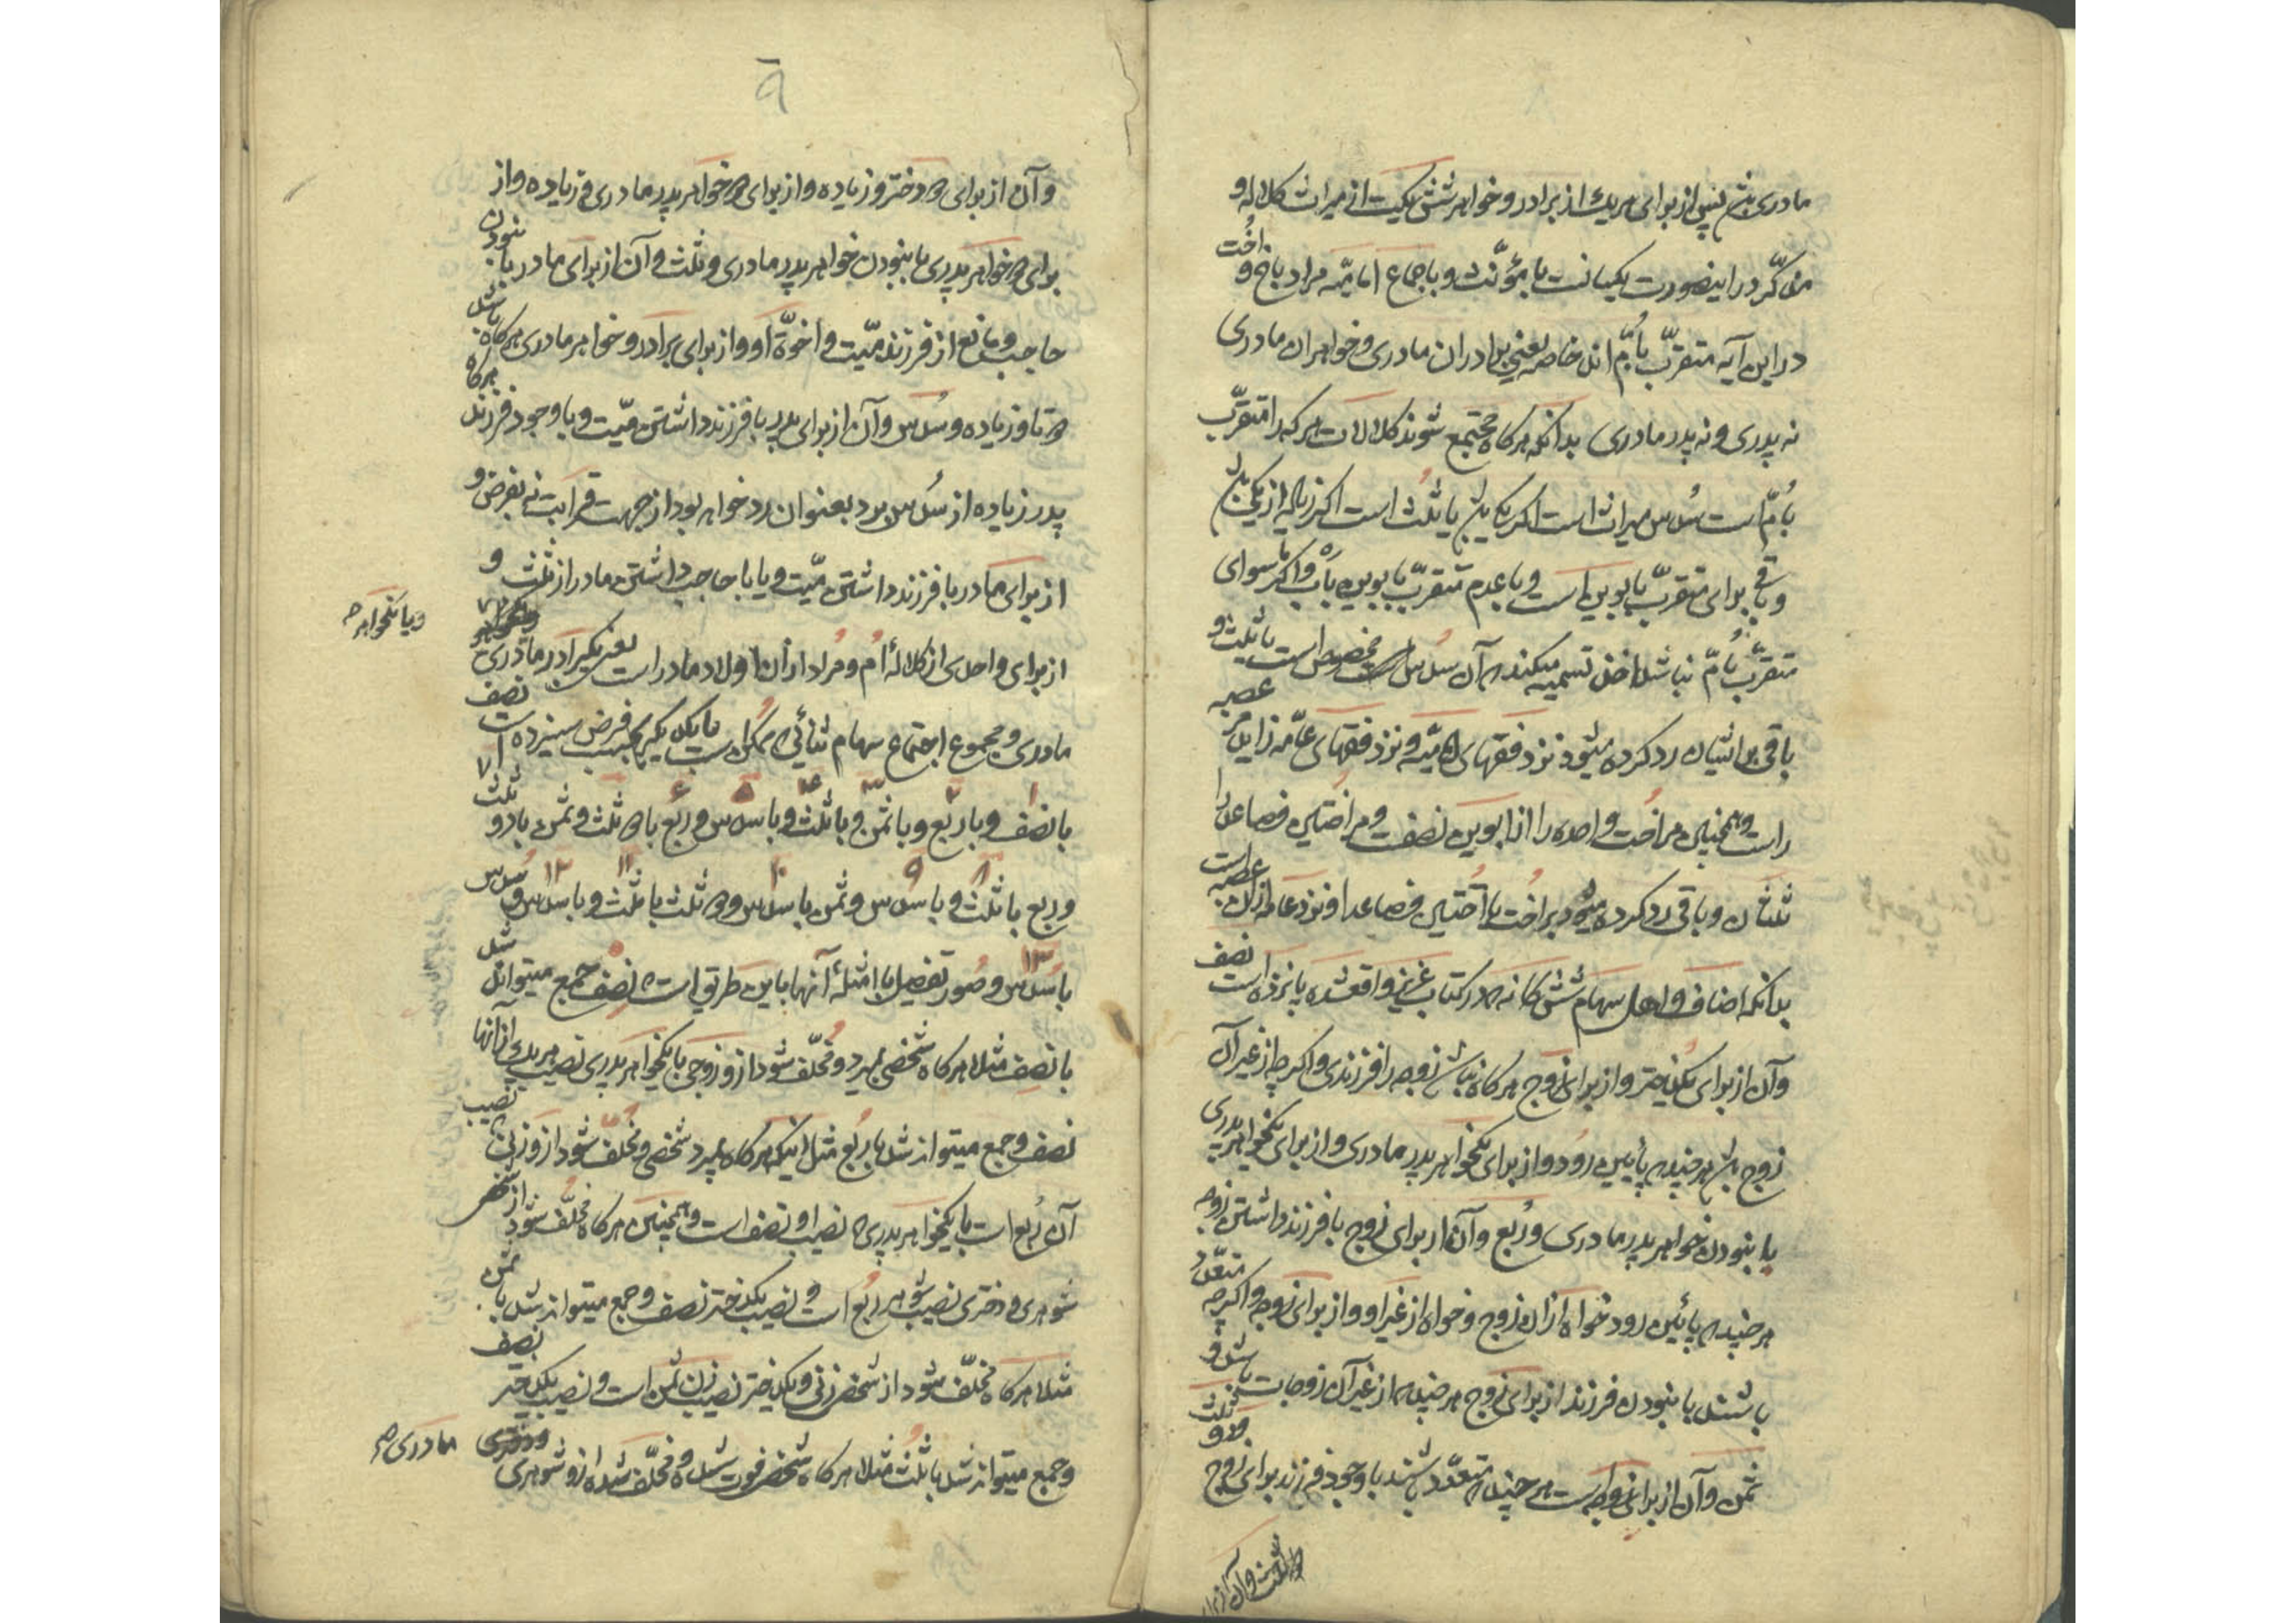 مادری باشد پس از برای هر یک از برادر و خواهر شش یکیست از میراث کلاله و
مذکّر در اینصورت یکسانست با مؤنّث و باجماع امامیّه مراد باخ و اخُت
در این آیه متقرّب باُمّ اند خاصه یعنی برادران مادری و خواهران مادری
نه پدری و نه پدر مادری بدانکه هرکاه مجتمع شوند کلالات هر که را متقرّب
باُمّ است سُدس میراث است اکر یکی باشد یا ثلث است اکر زیاده از یکی باشد
و باقی برای متقرّب بابوین است و با عدم متقرّب بابوین باَب و اکر ماسوای
متقرّب باُمّ نباشد اخذ تسمیه میکند که آن سُدس است مخصص است یا ثلث و
باقی بر ایشان رد کرده میشود نزد فقهای امامیّه و نزد فقهای عامّه زاید مر عصبه
راست و همچنین مر اخت واحده را از ابوین نصف و مر اختین فصاعدا را
ثلثان و باقی رد کرده میشود بر اخت یا اُختین فصاعدا و نزد عامه از آن عصبه است
بدانکه اصناف و اهل سهام شش کانه که در کتاب عزیز واقعشده پانزده است نصف
و آن از برای یکدختر و از برای زوج هرکاه نباشد زوجه را فرزندی و اکر چه از غیر آن
زوج باشد هر چند که پایین رود و از برای یکخواهر پدر مادری و از برای یکخواهر پدری
با نبودن خواهر پدر مادری و رُبع و آن از برای زوج با فرزند داشتن زوجه
هر چند که پائین رود خواه از آن زوج و خواه از غیر او و از برای زوجه و اکر چه متعدّد
باشند با نبودن فرزند از برای زوج هر چند که از غیر آن زوجات باشد و
ثمن و آن از برای زوجه است هر چند که متعدّد باشند با وجود فرزند برای زوج و دو ثلث
دو ثلث و آن از برای
۹
و آن از برای دو دختر و زیاده و از برای دو خواهر پدر مادری و زیاده و از
برای دو خواهر پدری با نبودن خواهر پدر مادری و ثلث و آن از برای مادر با نبودن
حاجب و مانع از فرزند میّت و اخوّة او و از برای برادر و خواهر مادری هرکاه باشد
دو تا و زیاده و سُدس و آن از برای پدر با فرزند داشتن میّت و با وجود فرزند هرکاه
پدر زیاده از سُدس برد بعنوان رد خواهد بود از جهت قرابت نه بفرض و
از برای مادر با فرزند داشتن میّت و یا با حاجب داشتن مادر از ثلث و
از برای واحدی از کلالهٔ اُم و مُراد از آن اولاد مادر است یعنی یکبرادر مادری
و یا یکخواهر
مادری و مجموع اجتماع سهام ثنائی که ممکن است با یکدیکر بحسب فرض سیزده است نصف
با نصف و با ربع و با ثمن و با ثلث و با سُدس و ربع با دو ثلث و ثمن با دو ثلث
۱ ۲ ۳ ۴ ۵ ۶ ۷
و ربع با ثلث و با سُدس و ثمن با سُدس و دو ثلث با ثلث و با سُدس و سُدس
۸ ۹ ۱۰ ۱۱ ۱۲
با سُدس و صُور تفصیل با امثلهٔ آنها باین طریق است که نصف جمع میتواند شد
۱۳
با نصف مثلا هرکاه شخصی بمیرد و مُخلّف شود از و زوجی با یکخواهر پدری نصیب هر یک از آنها
نصف و جمع میتواند شد با رُبع مثل اینکه هرکاه بمیرد شخصی و مُخلّف شود از و زنی که نصیب
آن رُبع است با یکخواهر پدری که نصیب او نصف است و همچنین هرکاه مُخلّف شود از شخصی
شوهری و دختری نصیب شوهر ربُع است و نصیب یکدختر نصف و جمع میتواند شد با ثمن
مثلا هرکاه مُخلّف شود از شخص زنی و یکدختر نصیب زن ثمن است و نصیب یکدختر نصف
و جمع میتواند شد با ثلث مثلا هرکاه شخصی فوت شده و مُخلّف شده از و شوهری
مادری